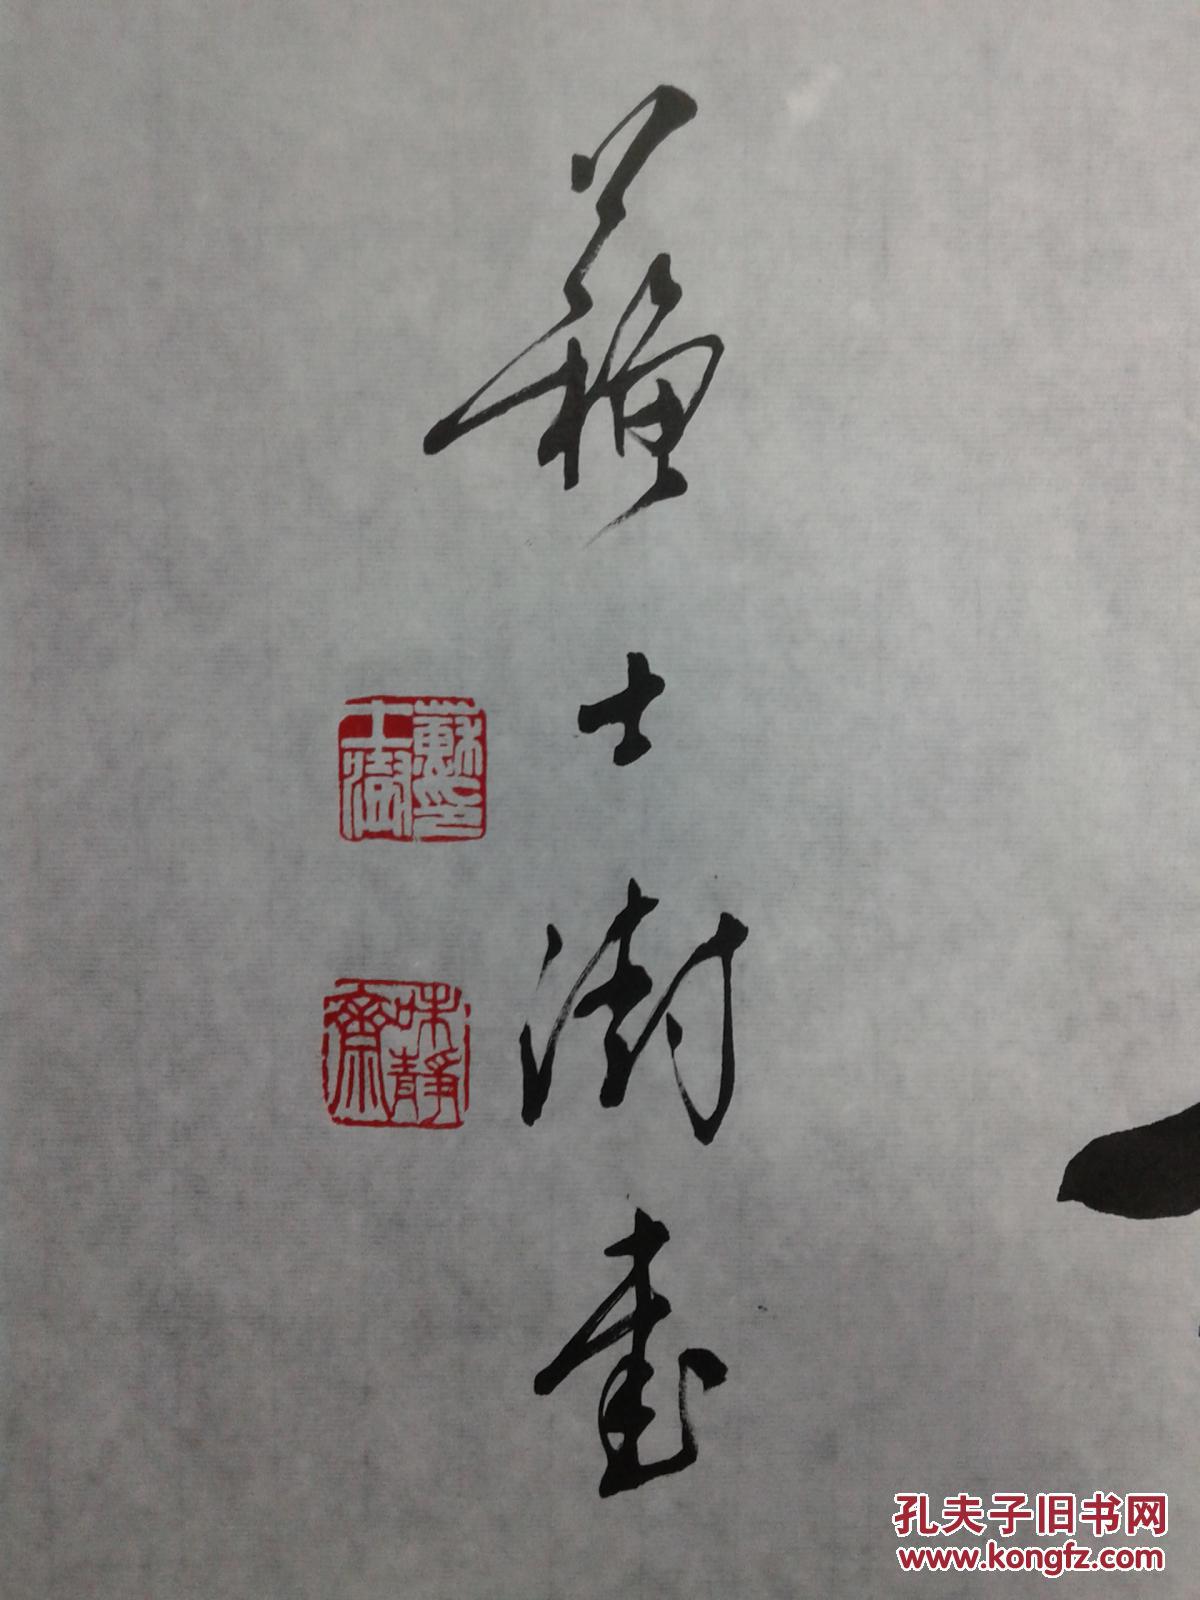 蘇士澍書
蘇士澍印
味靜齋
孔夫子旧书网
www.kongfz.com